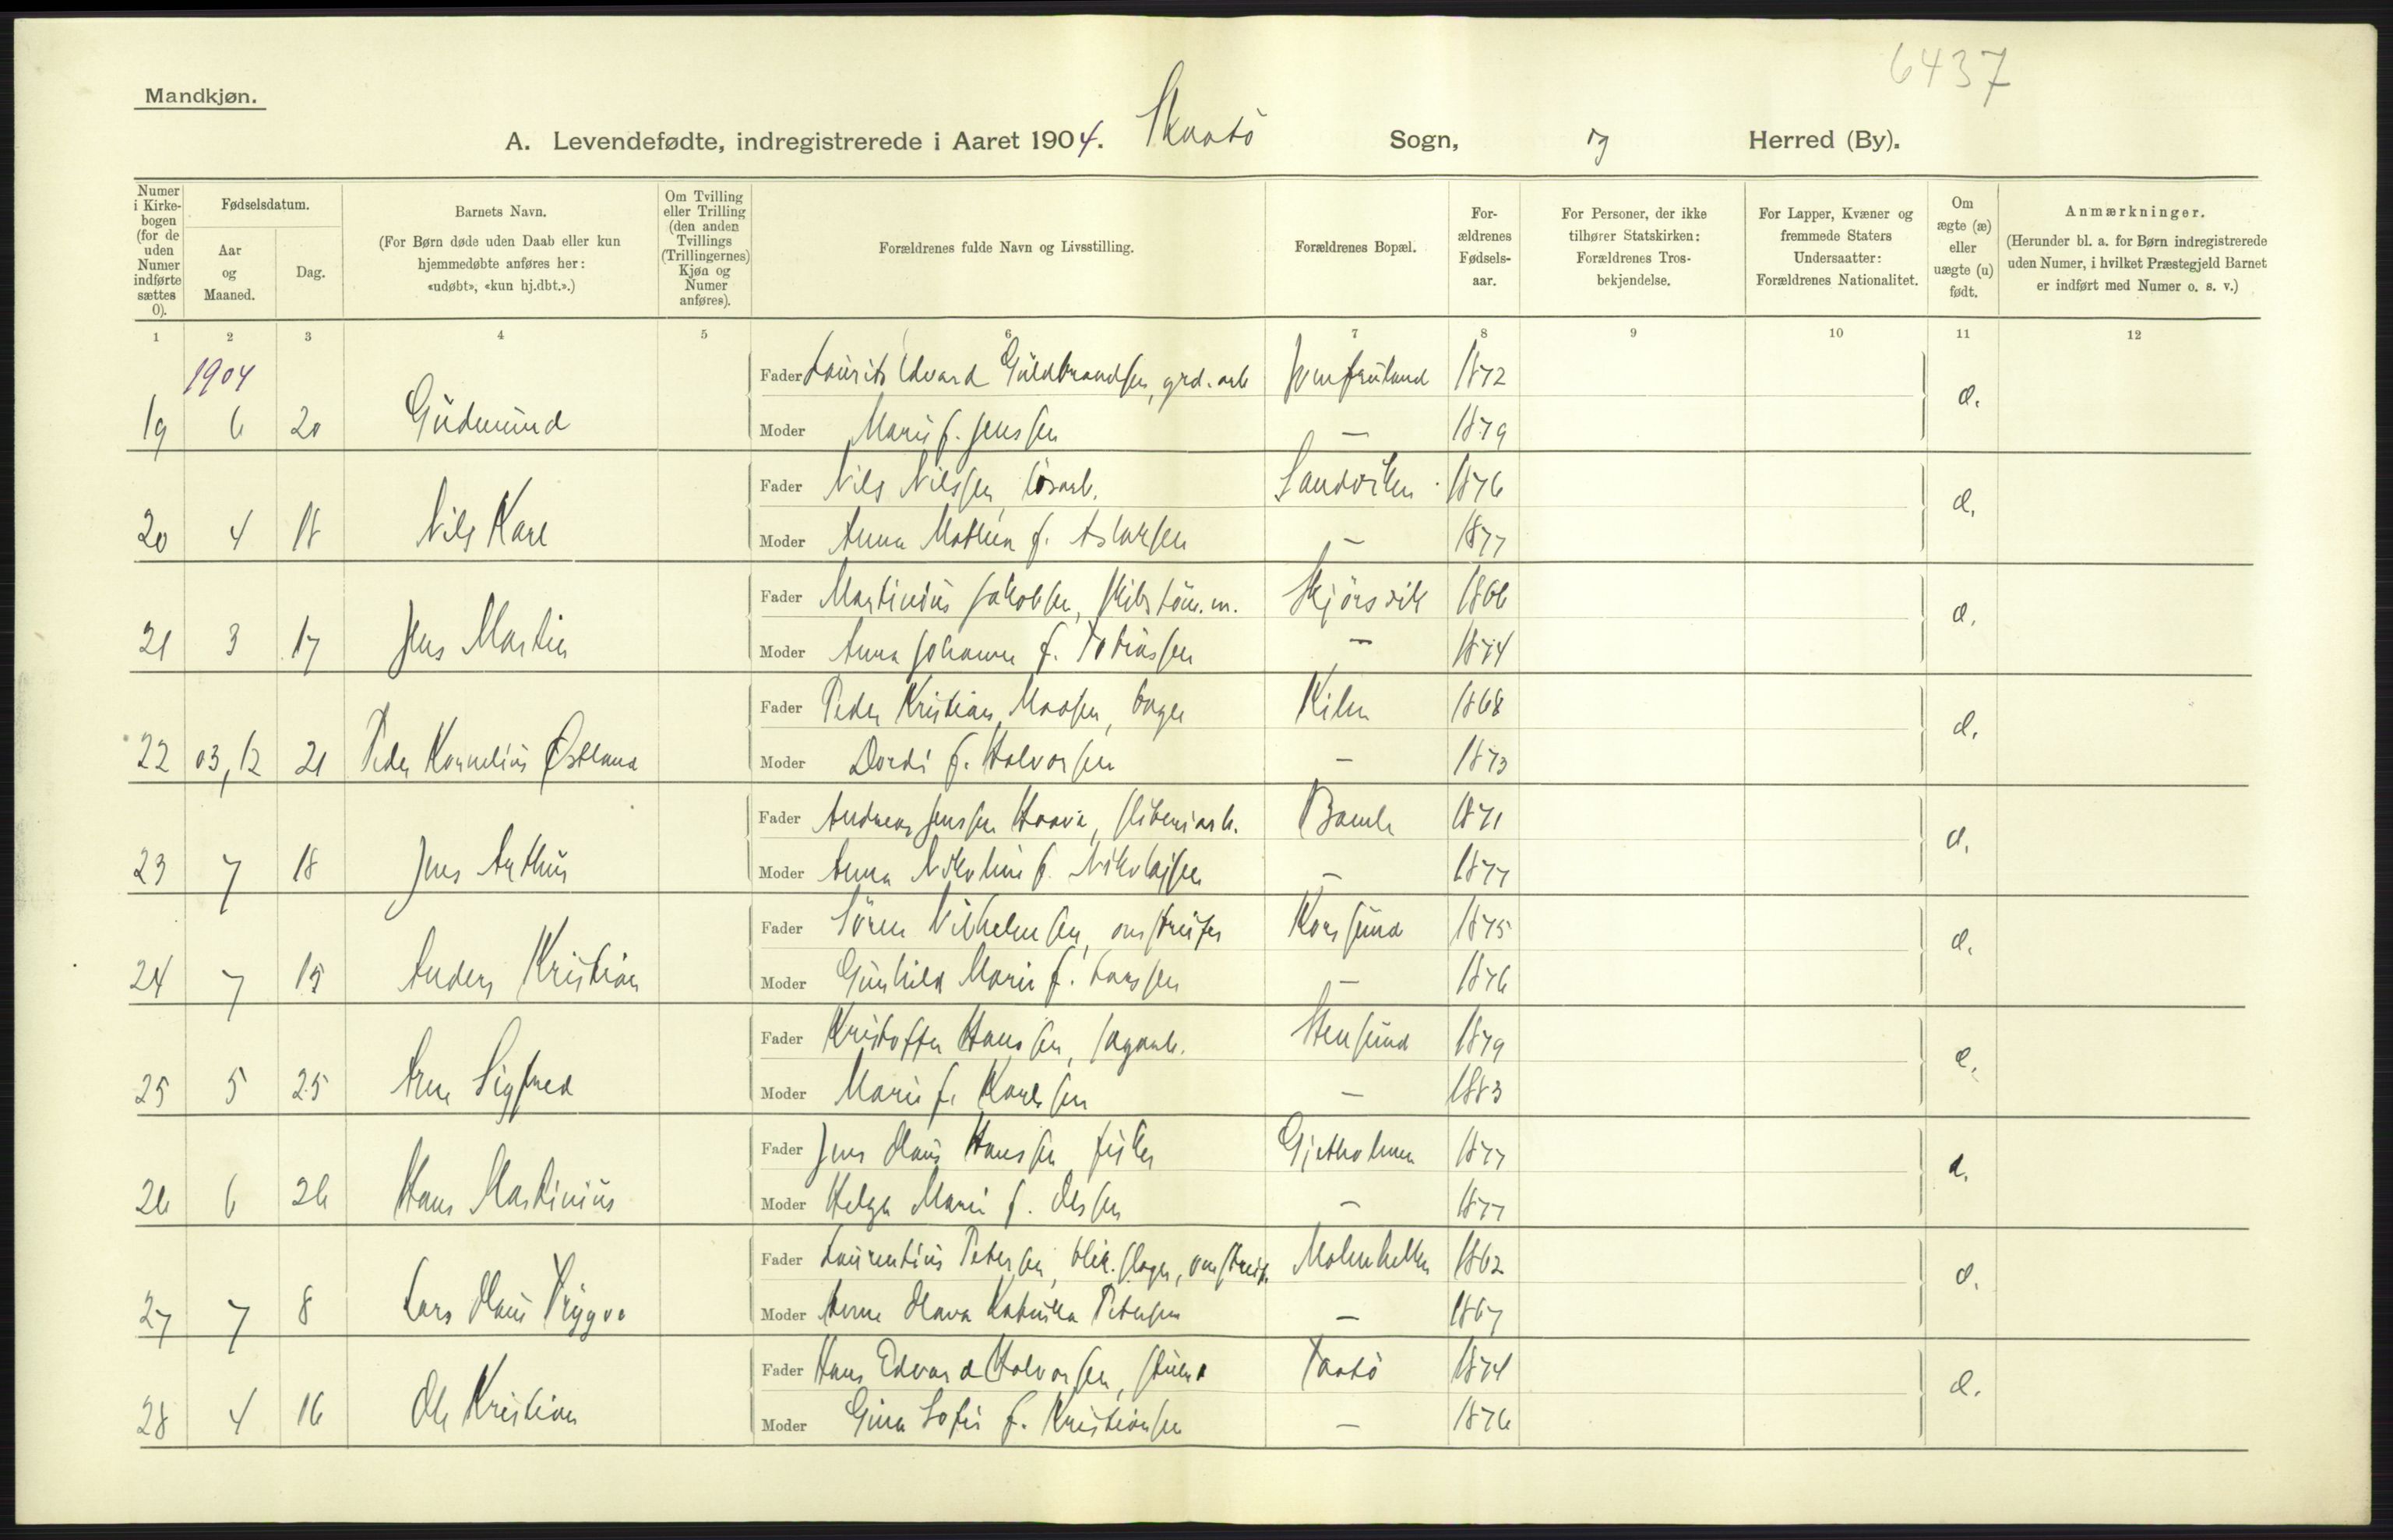 6437
Mandkjøn.
A. Levendefødte, indregistrerede i Aaret 1904. Skaatö Sogn, og Herred (By).
Numer i Kirkebogen (for de uden Numer indførte sættes 0).
Fødselsdatum.
Aar og Maaned.
Dag.
Barnets Navn.
(For Børn døde uden Daab eller kun hjemmedøbte anføres her: «udøbt», «kun hj.dbt.».)
Om Tvilling eller Trilling (den anden Tvillings (Trillingernes) Kjøn og Numer anføres).
Forældrenes fulde Navn og Livsstilling.
Forældrenes Bopæl.
Forældrenes Fødselsaar.
For Personer, der ikke tilhører Statskirken: Forældrenes Trosbekjendelse.
For Lapper, Kvæner og fremmede Staters Undersaatter: Forældrenes Nationalitet.
Om ægte (æ) eller uægte (u) født.
Anmærkninger.
(Herunder bl. a. for Børn indregistrerede uden Numer, i hvilket Præstegjeld Barnet er indført med Numer o. s. v.)
1 2 3 4 5 6 7 8 9 10 11 12
1904
Fader Laurits Edvard Guldbrandsen, grd. arb Jomfruland 1872 æ.
19 6 20 Gudmund Moder Marie f. Jenssen — 1879
Fader Nils Nilssen, løsarb. Sandviken 1876 æ.
20 4 18 Nils Karl Moder Anna Mathea f. Aslaksen — 1877
Fader Martinius Jakobsen, skibstöm.m. Skjörsvik 1866 æ.
21 3 17 Jens Martin Moder Anna Johanne f. Tobiassen — 1874
Fader Peder Kristian Moosen, bager Kilen 1868 æ.
22 03, 12 21 Peder Kornelius Østland Moder Dordi f. Halvorsen — 1873
Fader Andreas Jenssen Haavi, sliberiarb. Bamle 1871 æ.
23 7 18 Jens Arthur Moder Anna Nikoline f. Nikolajsen — 1877
Fader Sören Vilhelmsen, omstreifer Korssund 1875 æ.
24 7 15 Anders Kristian Moder Gunhild Marie f. Larssen — 1876
Fader Kristoffer Hanssen, sagarb. Stensund 1879 æ.
25 5 25 Arne Sigfred Moder Marie f. Karlsen — 1883
Fader Jens Olaus Hanssen fisker Gjetholmen 1877 æ.
26 6 26 Hans Martinius Moder Helga Marie f. Olssen — 1877
Fader Laurentius Petersen, blik.slager, omstreif. Molmhellen 1862 æ.
27 7 8 Lars Olaus Trygve Moder Anne Olava Katinka Petersen — 1867
Fader Hans Edvard Halvorsen, Taatö 1874 æ.
28 4 16 Ole Kristian Moder Gina Sofie f. Kristiansen — 1876